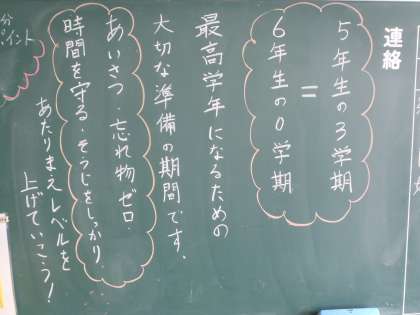 連絡
5年生の3学期
=
6年生の0学期
最高学年になるための
大切な準備の期間です、
あいさつ・忘れ物ゼロ・
時間を守る・そうじをしっかり
あたりまえレベルを
上げていこう!
分
ポイント